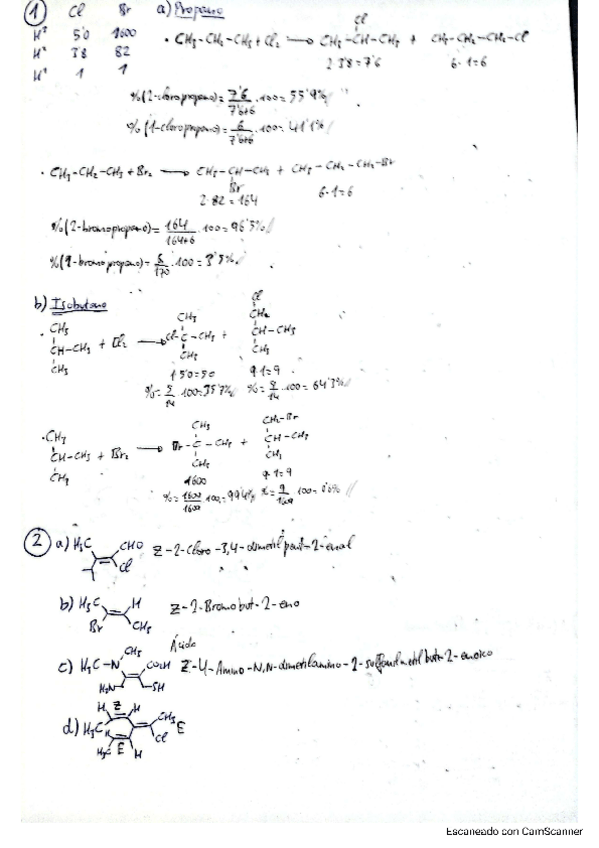 ① Cl Br a) Propano
H³ 5'0 1600
H² 3'8 82
H¹ 1 1
· CH₃-CH₂-CH₃ + Cl₂ → CH₃-CH-CH₃ + CH₃-CH₂-CH₂-Cl
Cl
2·3'8=7'6 6·1=6
%(2-cloropropano)= 7'6/7'6+6 ·100= 55'9%
%(1-cloropropano)= 6/7'6+6 ·100= 41'1%
· CH₃-CH₂-CH₃ + Br₂ → CH₃-CH-CH₃ + CH₃-CH₂-CH₂-Br
Br
2·82=164 6·1=6
%(2-bromopropano)= 164/164+6 ·100= 96'5%
%(1-bromopropano)= 6/170 ·100= 3'5%
b) Isobutano
CH₃ CH₃ Cl
CH-CH₃ + Cl₂ → Cl-C-CH₃ + CH₂
CH₃ CH₃ CH-CH₃
CH₃
1·5'0=5'0 9·1=9
%= 5/14 ·100=35'7% %= 9/14 ·100= 64'3%
· CH₃ CH₃ CH₂-Br
CH-CH₃ + Br₂ → Br-C-CH₃ + CH-CH₃
CH₃ CH₃ CH₃
1600 9·1=9
② a) H₃C CHO Z-2-Cloro-3,4-dimetilpent-2-enal
Cl
b) H₃C H Z-2-Bromobut-2-eno
Br CH₃
Ácido
c) H₃C-N CH₃ CO₂H Z-4-Amino-N,N-dimetilamino-2-sulfanilmetilbut-2-enoico
H₂N SH
H Z H
d) H₃C CH₃ E
H Cl
H₃C E H
Escaneado con CamScanner